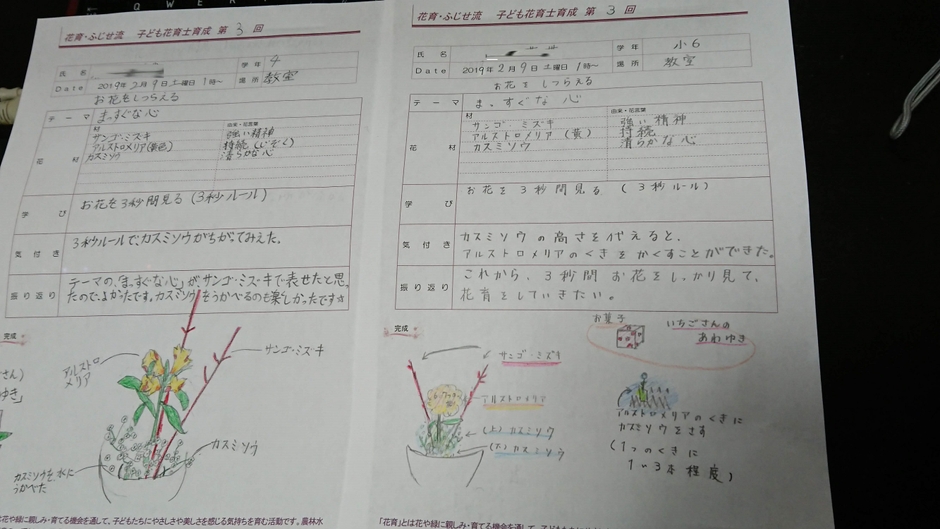 花育・ふじせ流 子ども花育士育成 第 3 回
氏名
学年 4
Date 2019年2月9日土曜日1時〜
場所 教室
お花をしつらえる
テーマ まっすぐな心
花材
材
由来・花言葉
サンゴ・ミズキ 強い精神
アルストロメリア(黄色) 持続(じぞく)
カスミソウ 清らかな心
学び お花を3秒間見る(3秒ルール)
気付き 3秒ルールで、カスミソウがちがってみえた。
振り返り テーマの、「まっすぐな心」が、サンゴ・ミズ・キで表せたと思っ
たのでよかったです。カスミソウをうかべるのも楽しかったです☆
完成
アルストロ
メリア
サンゴ・ミズ・キ
カスミソウ
カスミソウを水に
うかべた
さん)
ゆき」
花や緑に親しみ・育てる機会を通して、子どもたちにやさしさや美しさを感じる気持ちを育む活動です。農林水
花育・ふじせ流 子ども花育士育成 第 3 回
氏名
学年 小6
Date 2019年2月9日土曜日1時〜
場所 教室
お花をしつらえる
テーマ まっすぐな心
花材
材
由来・花言葉
サンゴ・ミズキ 強い精神
アルストロメリア(黄) 持続
カスミソウ 清らかな心
学び お花を3秒間見る(3秒ルール)
気付き カスミソウの高さを代えると、
アルストロメリアのくきをかくすことができた。
振り返り これから、3秒間お花をしっかり見て、
花育をしていきたい。
完成
お菓子
いちごさんの
あわゆき
サンゴ・ミズキ
アルストロメリア
(上)カスミソウ
(下)カスミソウ
アルストロメリアのくきに
カスミソウをさす
(1つのくきに
1〜3本程度)
「花育」とは花や緑に親しみ・育てる機会を通して、子ども